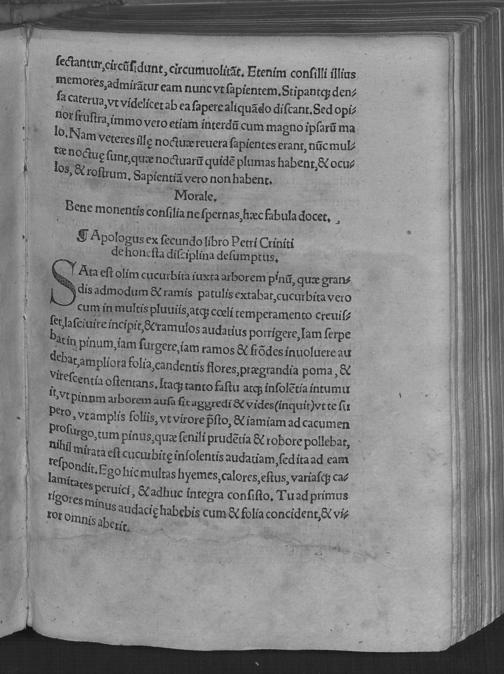 sectantur,circũſidunt, circumuolitãt. Etenim consilli illius
memores,admirãtur eam nunc vt sapientem. Stipantqȝ den⸗
sa caterua, vt videlicet ab ea sapere aliquãdo discant. Sed opi⸗
nor frustra, immo vero etiam interdũ cum magno ipsarũ ma
lo. Nam veteres illę noctuæ reuera sapientes erant, nũc mul⸗
tæ noctuę sunt, quæ noctuarũ quidẽ plumas habent, & ocu⸗
los, & rostrum. Sapientiã vero non habent.
Morale.
Bene monentis consilia ne spernas, hæc fabula docet.
¶ Apologus ex secundo libro Petri Criniti
de honesta disciplina desumptus.
SAta est olim cucurbita iuxta arborem pinũ, quæ gran⸗
dis admodum & ramis patulis extabat, cucurbita vero
cum in multis pluuiis, atqȝ cœli temperamento creuis⸗
set, lasciuire incipit, & ramulos audatius porrigere, Iam serpe
bat in pinum, iam surgere, iam ramos & frõdes inuoluere au
debat, ampliora folia, candentis flores, prægrandia poma, &
virescentia ostentans. Itaqȝ tanto fastu atqȝ insolẽtia intumu
it, vt pinum arborem ausa sit aggredi & vides (inquit) vt te su
pero, vt amplis foliis, vt virore p̃sto, & iamiam ad cacumen
prosurgo, tum pinus, quæ senili prudẽtia & robore pollebat,
nihil mirata est cucurbitę insolentis audatiam, sed ita ad eam
respondit. Ego hic multas hyemes, calores, ęstus, variasqȝ ca⸗
lamitates peruici, & adhuc integra consisto. Tu ad primus
rigores minus audacię habebis cum & folia concident, & vi⸗
ror omnis aberit.